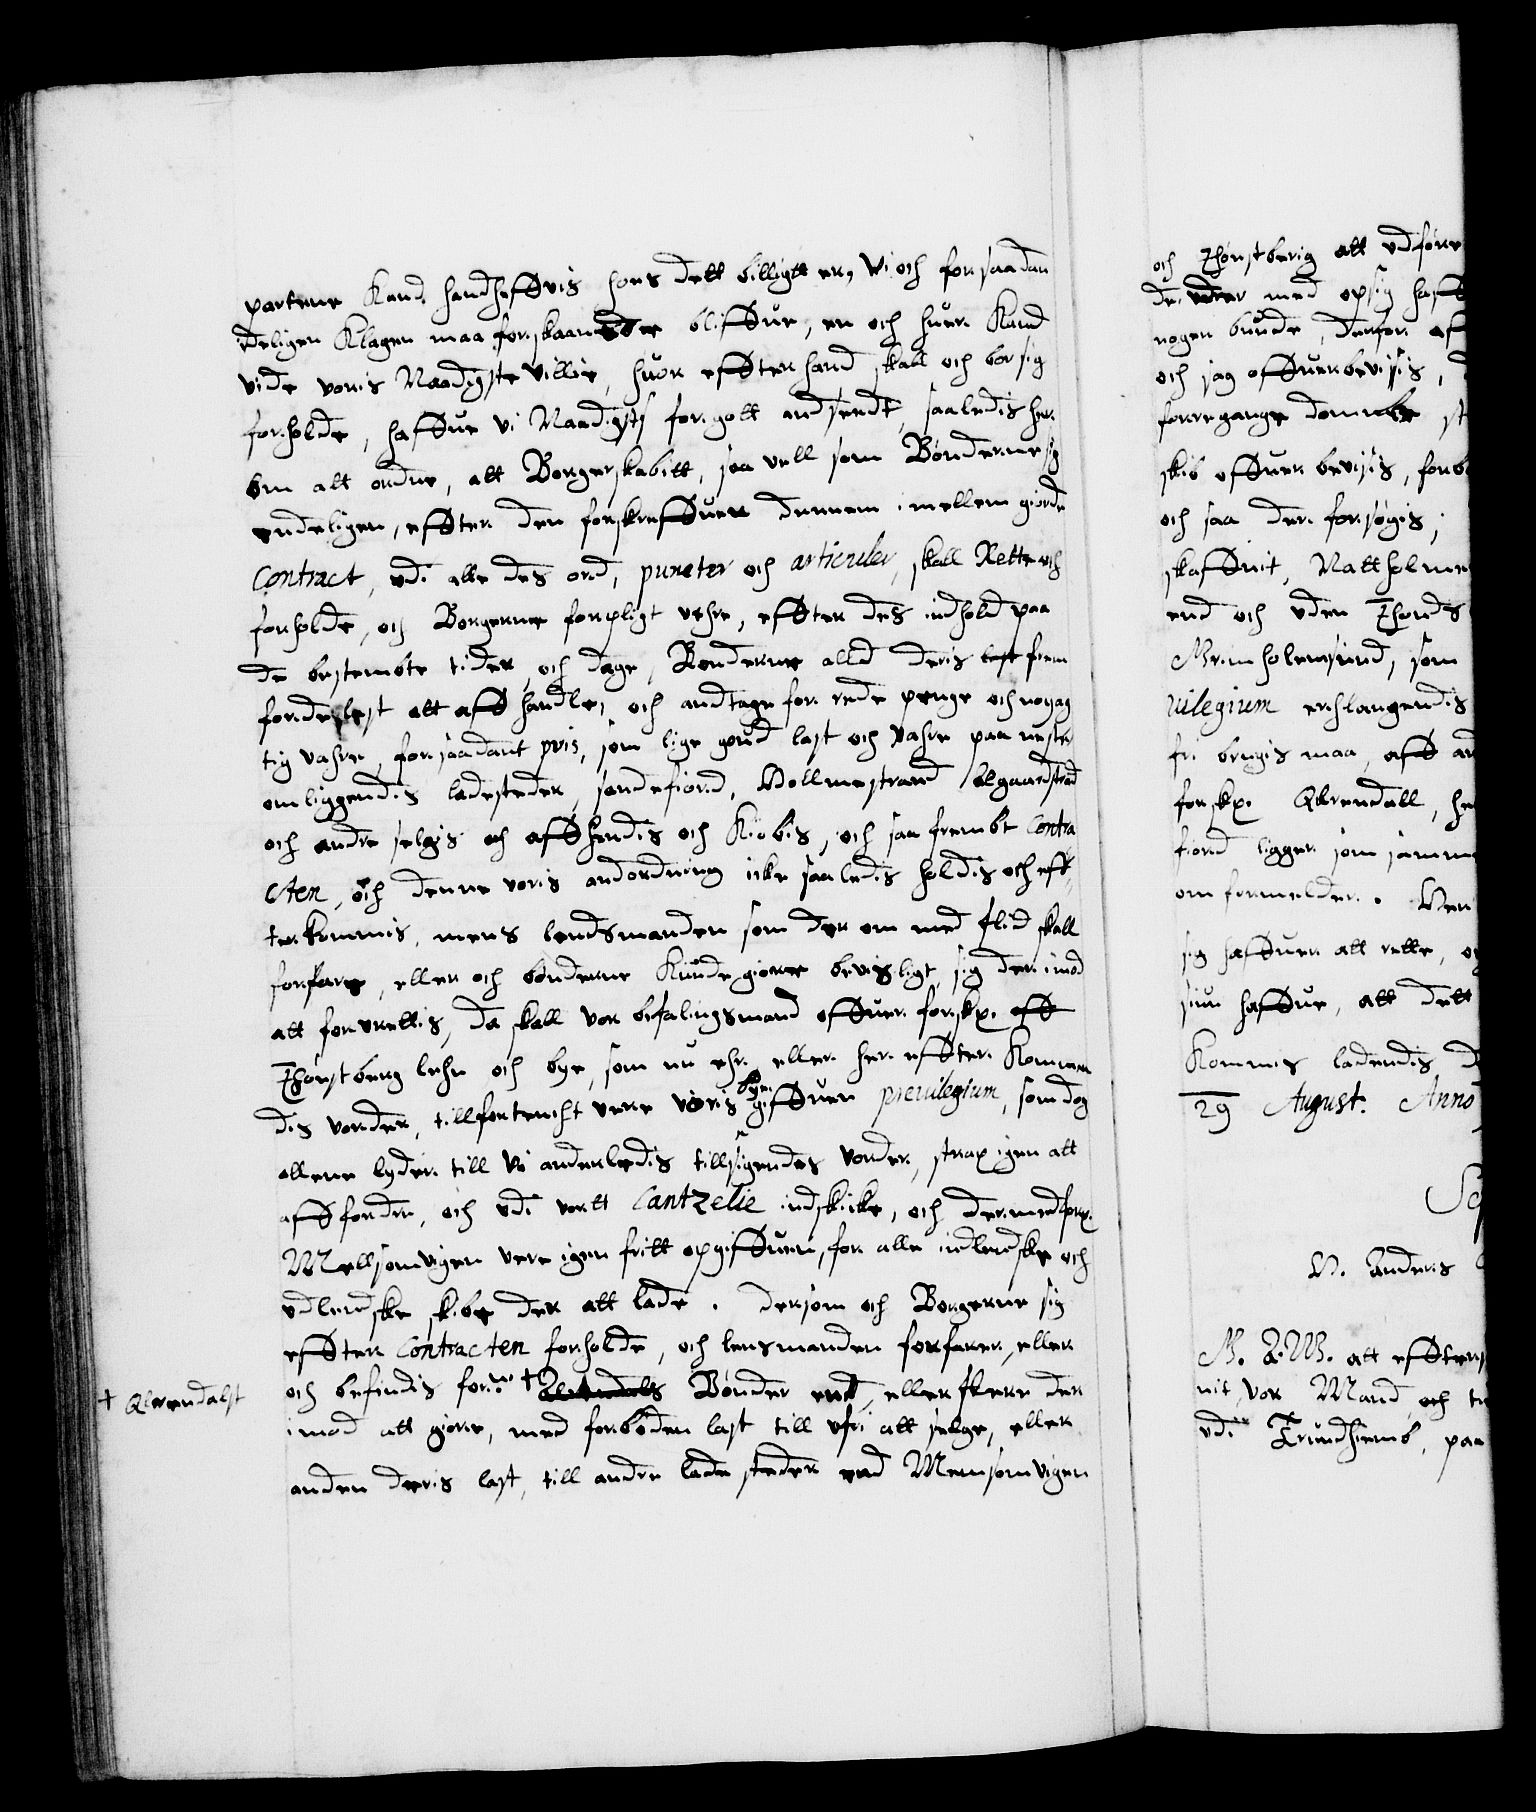 partene Kand handheffvis hoes dett billigtt er, Vi och for saadan
ideligen Klagen maa forskaanedee bliffue, en och huer Kand
vide voris Naadigste villie, huor effter hand skall och bør sig
forholde, haffue vi Naadigst for gott andseedt, saaledis her
om att ordne, att Borgerskabitt, saa vell som Bønderne sig
endeligen, effter den forskreffuen dennem imellem giorde
Contract, udi alle des ord, puncter och articuler, skall Rette och
forholde, och Borgerne forpligt vehre, effter des indhold paa
de bestembte tider, och dage, Bønderne alld deris last frem
for deylest att aff handle, och andtage for rede penge och nøyag
tig vahre, for saadant pris, som lige goud last och Vahre paa neste
omliggendis ladesteder, sandefiord, Hollmestrand Aasgaardstrand
och andre selgis och affhendis och Kiøbis, och saa frembt Contra
cten, och denne voris andordning icke saaledis holdis och eff,
terkommis, mens lendsmanden som der om med flid skall
forfare, eller och bønderne Kunde giøre bevisligt, sig der imod
att forvrettis, da skall vor befalingsmand offuer forskr. aff
Thønsberg lehn och bye, som nu ehr, eller her effter Kommen
dis vorder, tillfortencht vere voris byen giffuen previlegium, som dog
allene lyder till Vi anderledis tillsigendes vorder, strax igen att
affordre, och udi vortt Cantzelie indskicke, och der med forskr.
Mellsomvigen vere igen fritt opgiffuen, for alle indlendske och
udlendske skibe der att lade. Dersom och Borgerne sig
effter Contracten forholde, och lensmanden forfarer, eller
och befindis forne † Bønder end, eller flere der
† Qlerendalst
imod att giøre, med forboden last till ufri att selge, eller
anden deris last, till andre lade steder end Memsomvigen
och Thønsberig att udføre
de med opsig haff
nogen bunde, derfor aff
och sag offuerbevisis,
forregange domme st
skib offuer bevisis, forb
och saa der forsøgis,
skaffuit, Nattholme
end och uden Thønds
som
vilegium erhlangendis
fri brugis maa, aff an
forskr. Qlerendall, he
fiord ligger som samme
om formelder. Men
sig haffuer att rette, og
siun haffue, att dett
Kommis ladendis, d
29 August. Anno
H. Anders
att effter
nit, vor Mand, och tr
udi Trundhiemb, paa